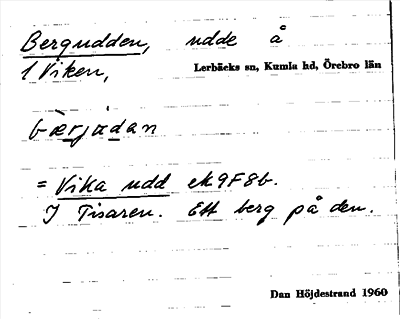 Bergudden, udde å
1 Viken, Lerbäcks sn, Kumla hd, Örebro län
bærjùdan
= Vika udd ek 9F8b.
I Tisaren. Ett berg på den.
Dan Höjdestrand 1960